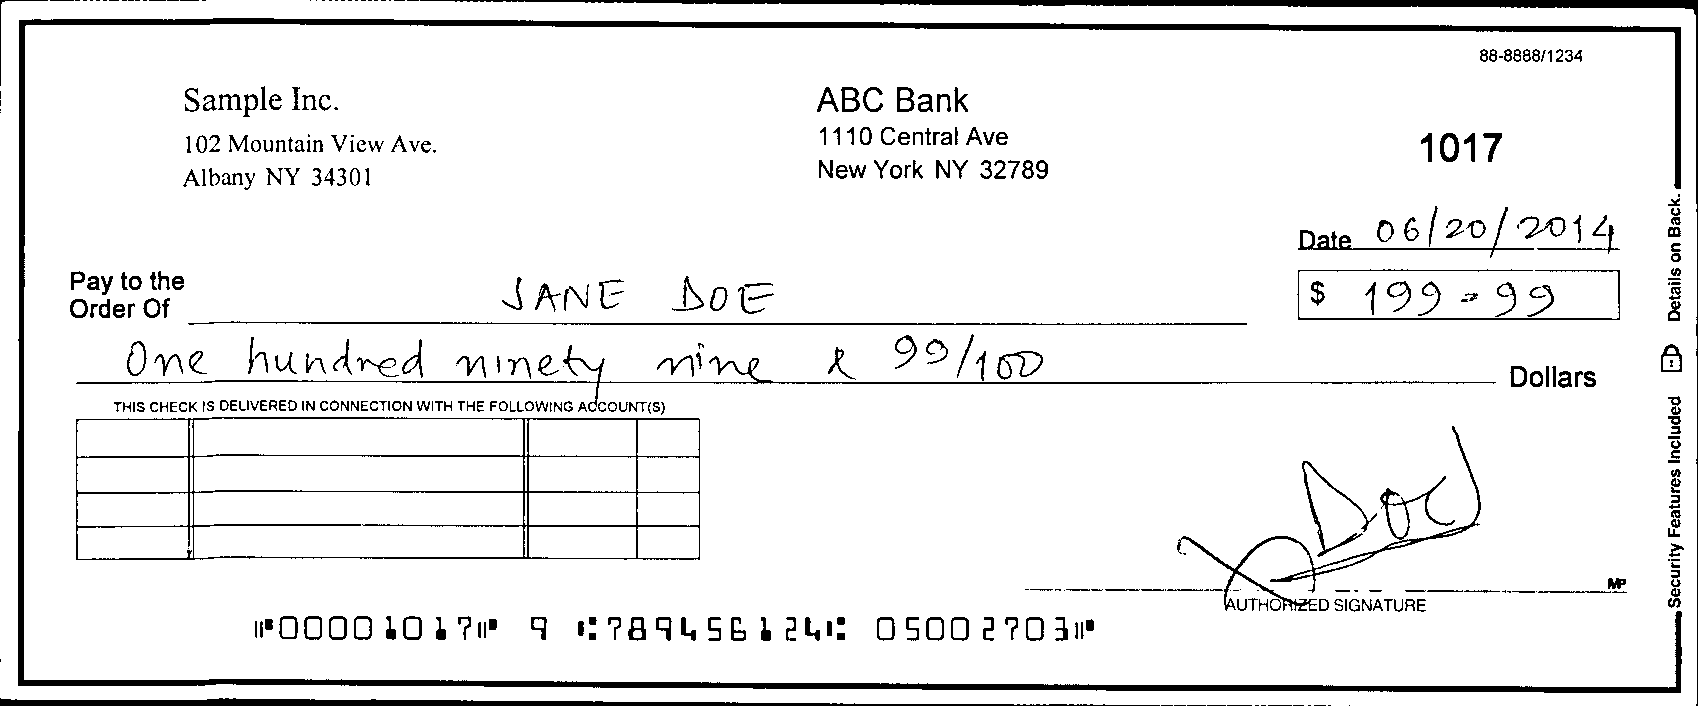 88-8888/1234
Sample Inc.
102 Mountain View Ave.
Albany NY 34301
ABC Bank
1110 Central Ave
New York NY 32789
1017
Date 06/20/2014
Pay to the
Order Of JANE DOE
$ 199-99
One hundred ninety nine & 99/100 Dollars
THIS CHECK IS DELIVERED IN CONNECTION WITH THE FOLLOWING ACCOUNT(S)
Doe
MP
AUTHORIZED SIGNATURE
⑈00001017⑈ 9 ⑆789456124⑆ 05002703⑈
Security Features Included Details on Back.